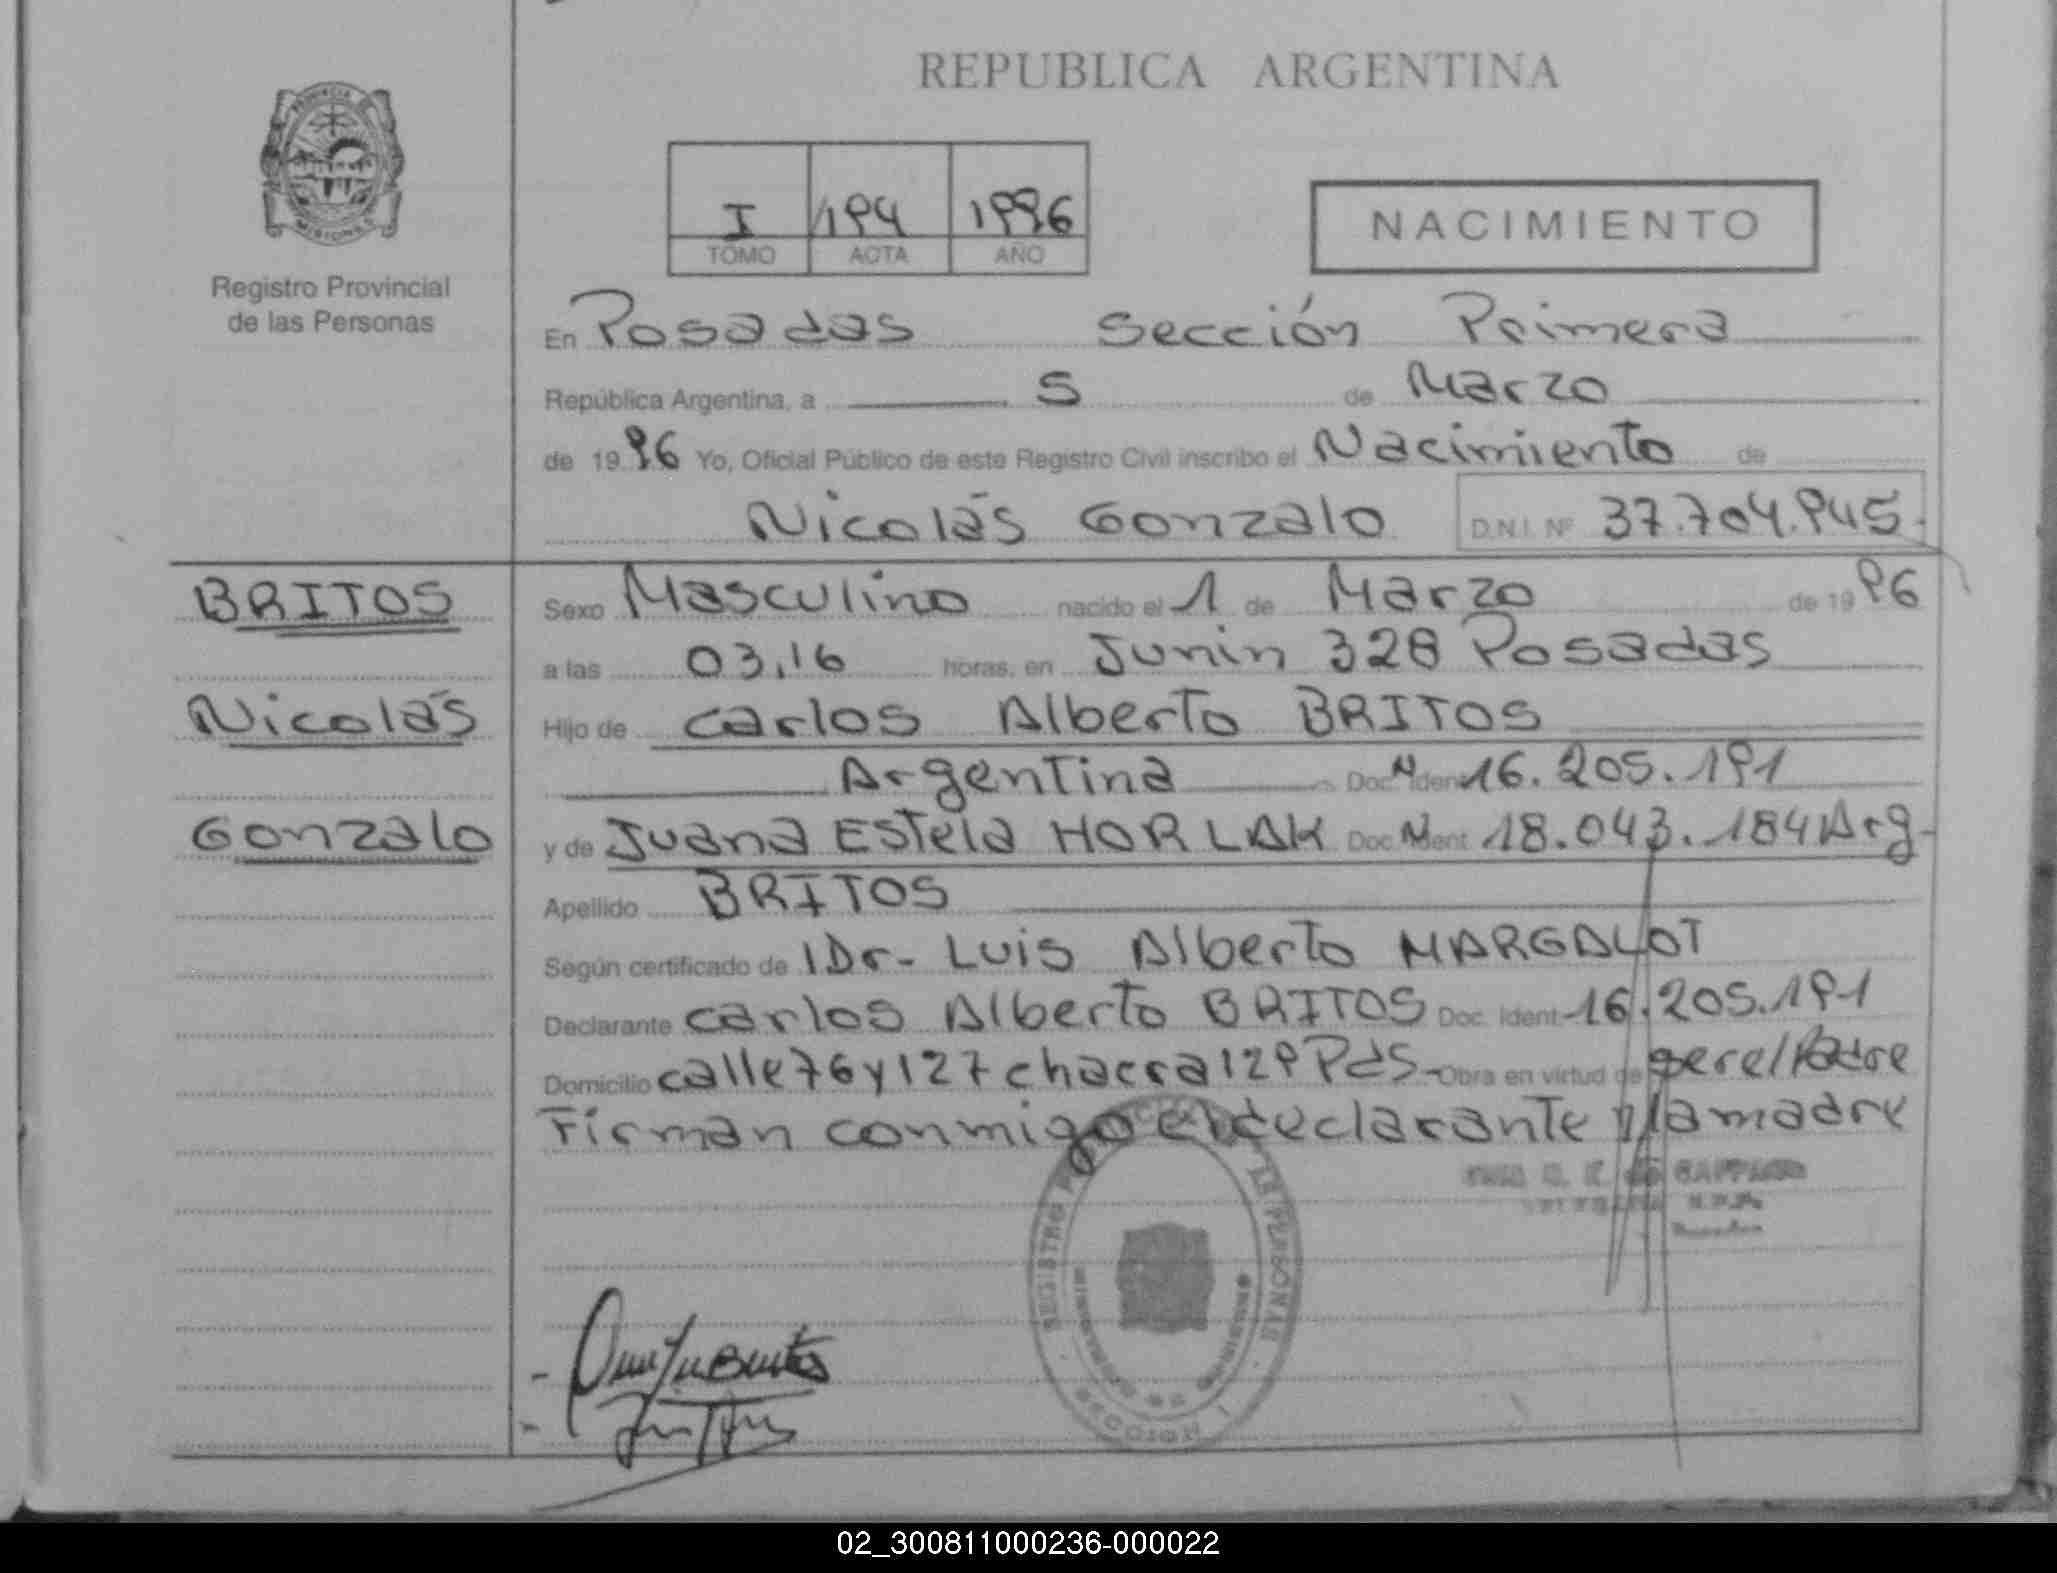 REPUBLICA ARGENTINA
PROVINCIA DE
MISIONES
Registro Provincial
de las Personas
I 194 1996
TOMO ACTA AÑO
NACIMIENTO
En Posadas Sección Primera
República Argentina, a 5 de Marzo
de 1996 Yo, Oficial Público de este Registro Civil inscribo el Nacimiento de
Nicolás Gonzalo D.N.I. Nº 37.704.945
BRITOS
Nicolás
Gonzalo
Sexo Masculino nacido el 1 de Marzo de 1996
a las 03,16 horas, en Junin 328 Posadas
Hijo de Carlos Alberto BRITOS
Argentina Doc N Ident 16.205.191
y de Juana Estela HORLAK Doc N Ident 18.043.184 Arg-
Apellido BRITOS
Según certificado de Dr- Luis Alberto MARGALOT
Declarante Carlos Alberto BRITOS Doc. Ident 16.205.191
Domicilio calle 76 y 127 chacra 129 Pds- Obra en virtud de ser el Padre
Firman conmigo el declarante y la madre
REGISTRO LAS PERSONAS
SECCION 1
02_300811000236-000022